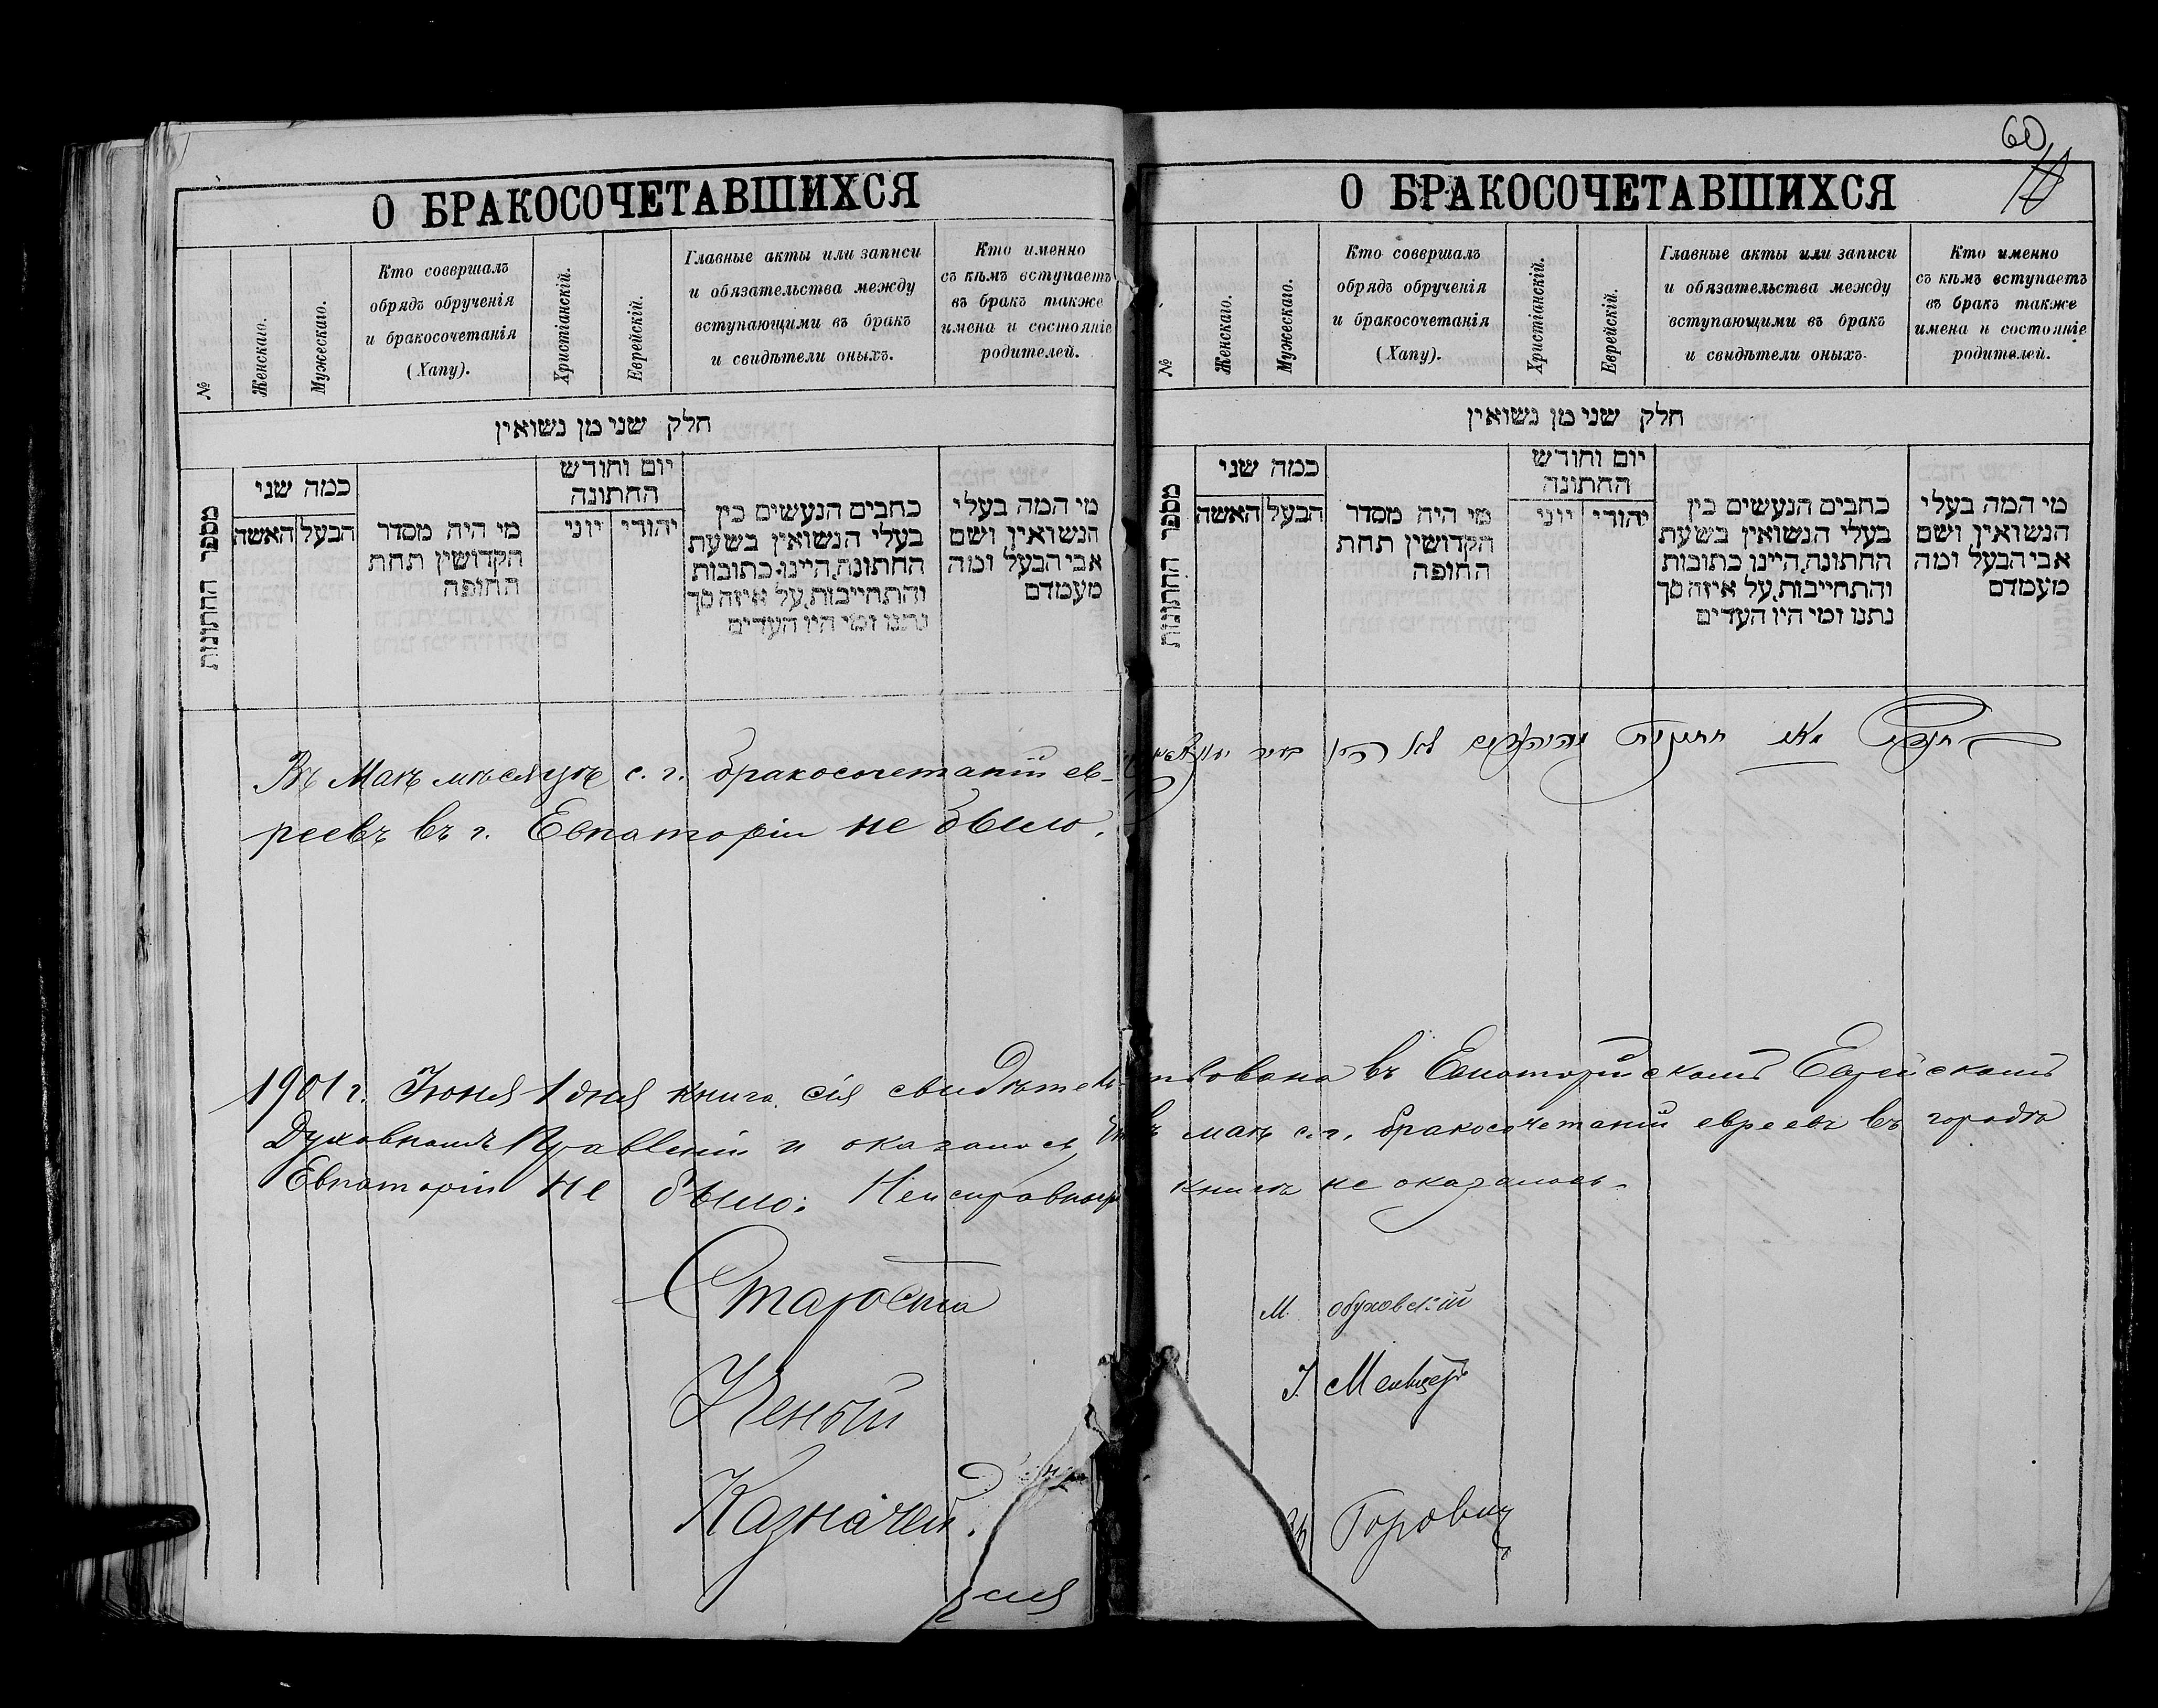 60
10
О БРАКОСОЧЕТАВШИХСЯ
№
Женскаго.
Мужескаго.
Кто совершалъ
обрядъ обрученія
и бракосочетанія
(Хапу).
Христіанскій.
Еврейскій.
Главные акты или записи
и обязательства между
вступающими въ бракъ
и свидѣтели оныхъ.
Кто именно
съ кѣмъ вступаетъ
въ бракъ также
имена и состояніе
родителей.
חלק שני מן נשואין
מספר החתונות
כמה שני
האשה
הבעל
מי היה מסדר
הקדושין תחת
החופה
יום וחודש
החתונה
יוני
יהודי
כתבים הנעשים בין
בעלי הנשואין בשעת
החתונה, היינו כתובות
והתחייבות, על איזה סך
נתנו ומי היו העדים
מי המה בעלי
הנשואין ושם
אבי הבעל ומה
מעמדם
Въ Маѣ мѣсяцѣ с. г. бракосочетаній ев-
реевъ въ г. Евпаторіи не было.
О БРАКОСОЧЕТАВШИХСЯ
№
Женскаго.
Мужескаго.
Кто совершалъ
обрядъ обрученія
и бракосочетанія
(Хапу).
Христіанскій.
Еврейскій.
Главные акты или записи
и обязательства между
вступающими въ бракъ
и свидѣтели оныхъ.
Кто именно
съ кѣмъ вступаетъ
въ бракъ также
имена и состояніе
родителей.
חלק שני מן נשואין
מספר החתונות
כמה שני
האשה
הבעל
מי היה מסדר
הקדושין תחת
החופה
יום וחודש
החתונה
יוני
יהודי
כתבים הנעשים בין
בעלי הנשואין בשעת
החתונה, היינו כתובות
והתחייבות, על איזה סך
נתנו ומי היו העדים
מי המה בעלי
הנשואין ושם
אבי הבעל ומה
מעמדם
בחדש מאי חתונות מהיהודים לא היו בעיר
1901 г. Іюня 1 дня книга сія свидѣтельствована въ Евпаторійскомъ Еврейскомъ
Духовномъ Правленіи и оказалось, въ маѣ с. г. бракосочетаній евреевъ въ городѣ
Евпаторіи не было. Неисправностей книгѣ не оказалось.
Староста М. Обуховскій
Ученый І. Мельцеръ
Казначей. Горовиц